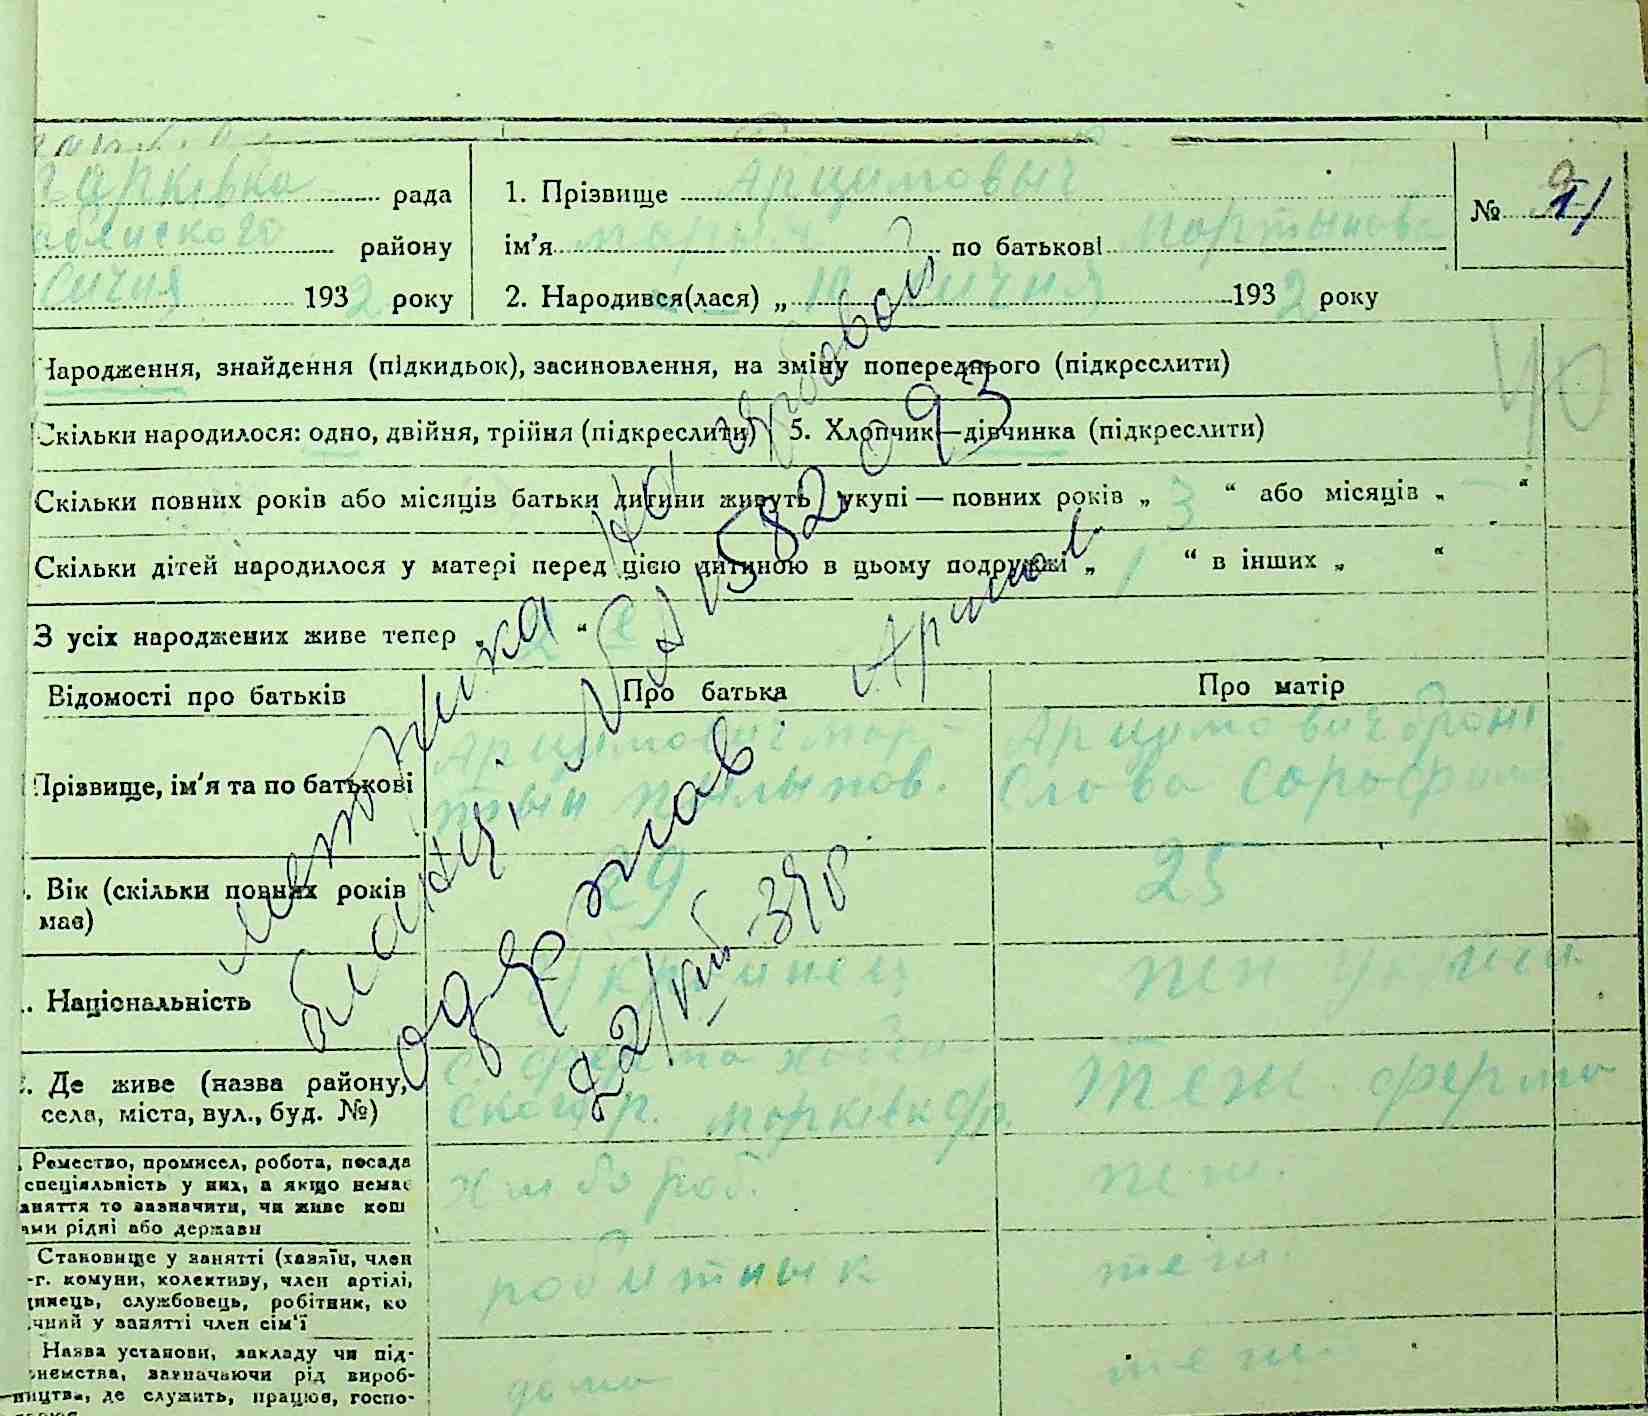 рада
району
Січня 1932 року
1. Прізвище Арцимовыч
ім'я по батькові Мортынова
2. Народився(лася) „ січня 1932 року
№ 1/
Народження, знайдення (підкидьок), засиновлення, на зміну попереднього (підкреслити)
Скільки народилося: одно, двійня, трійня (підкреслити) 5. Хлопчик—дівчинка (підкреслити)
Скільки повних років або місяців батьки дитини живуть укупі — повних років „ 3 “ або місяців „ — “
Скільки дітей народилося у матері перед цією дитиною в цьому подружжі „ 1 “ в інших „ “
З усіх народжених живе тепер „ 2 “
Відомості про батьків
Про батька
Про матір
Прізвище, ім'я та по батькові
Арцимович Мар-
тын
Арцимович Броні
слова
Вік (скільки повних років
має)
29
25
Національність
Українец
Де живе (назва району,
села, міста, вул., буд. №)
ферма
теж ферма
Ремество, промисел, робота, посада
спеціяльність у них, а якщо немає
заняття то зазначити, чи живе кош
ами рідні або держави
хлібороб.
теж.
Становище у занятті (хазяїн, член
-г. комуни, колективу, член артілі,
службовець, робітник, ко
чий у занятті член сім'ї
робитнык
теж.
Назва установи, закладу чи під-
ємства, зазначаючи рід вироб-
ництва, де служить, працює, госпо-
дома
теж
метрика на
бланкі № 1582093
одержав
22/VIII 39р
40